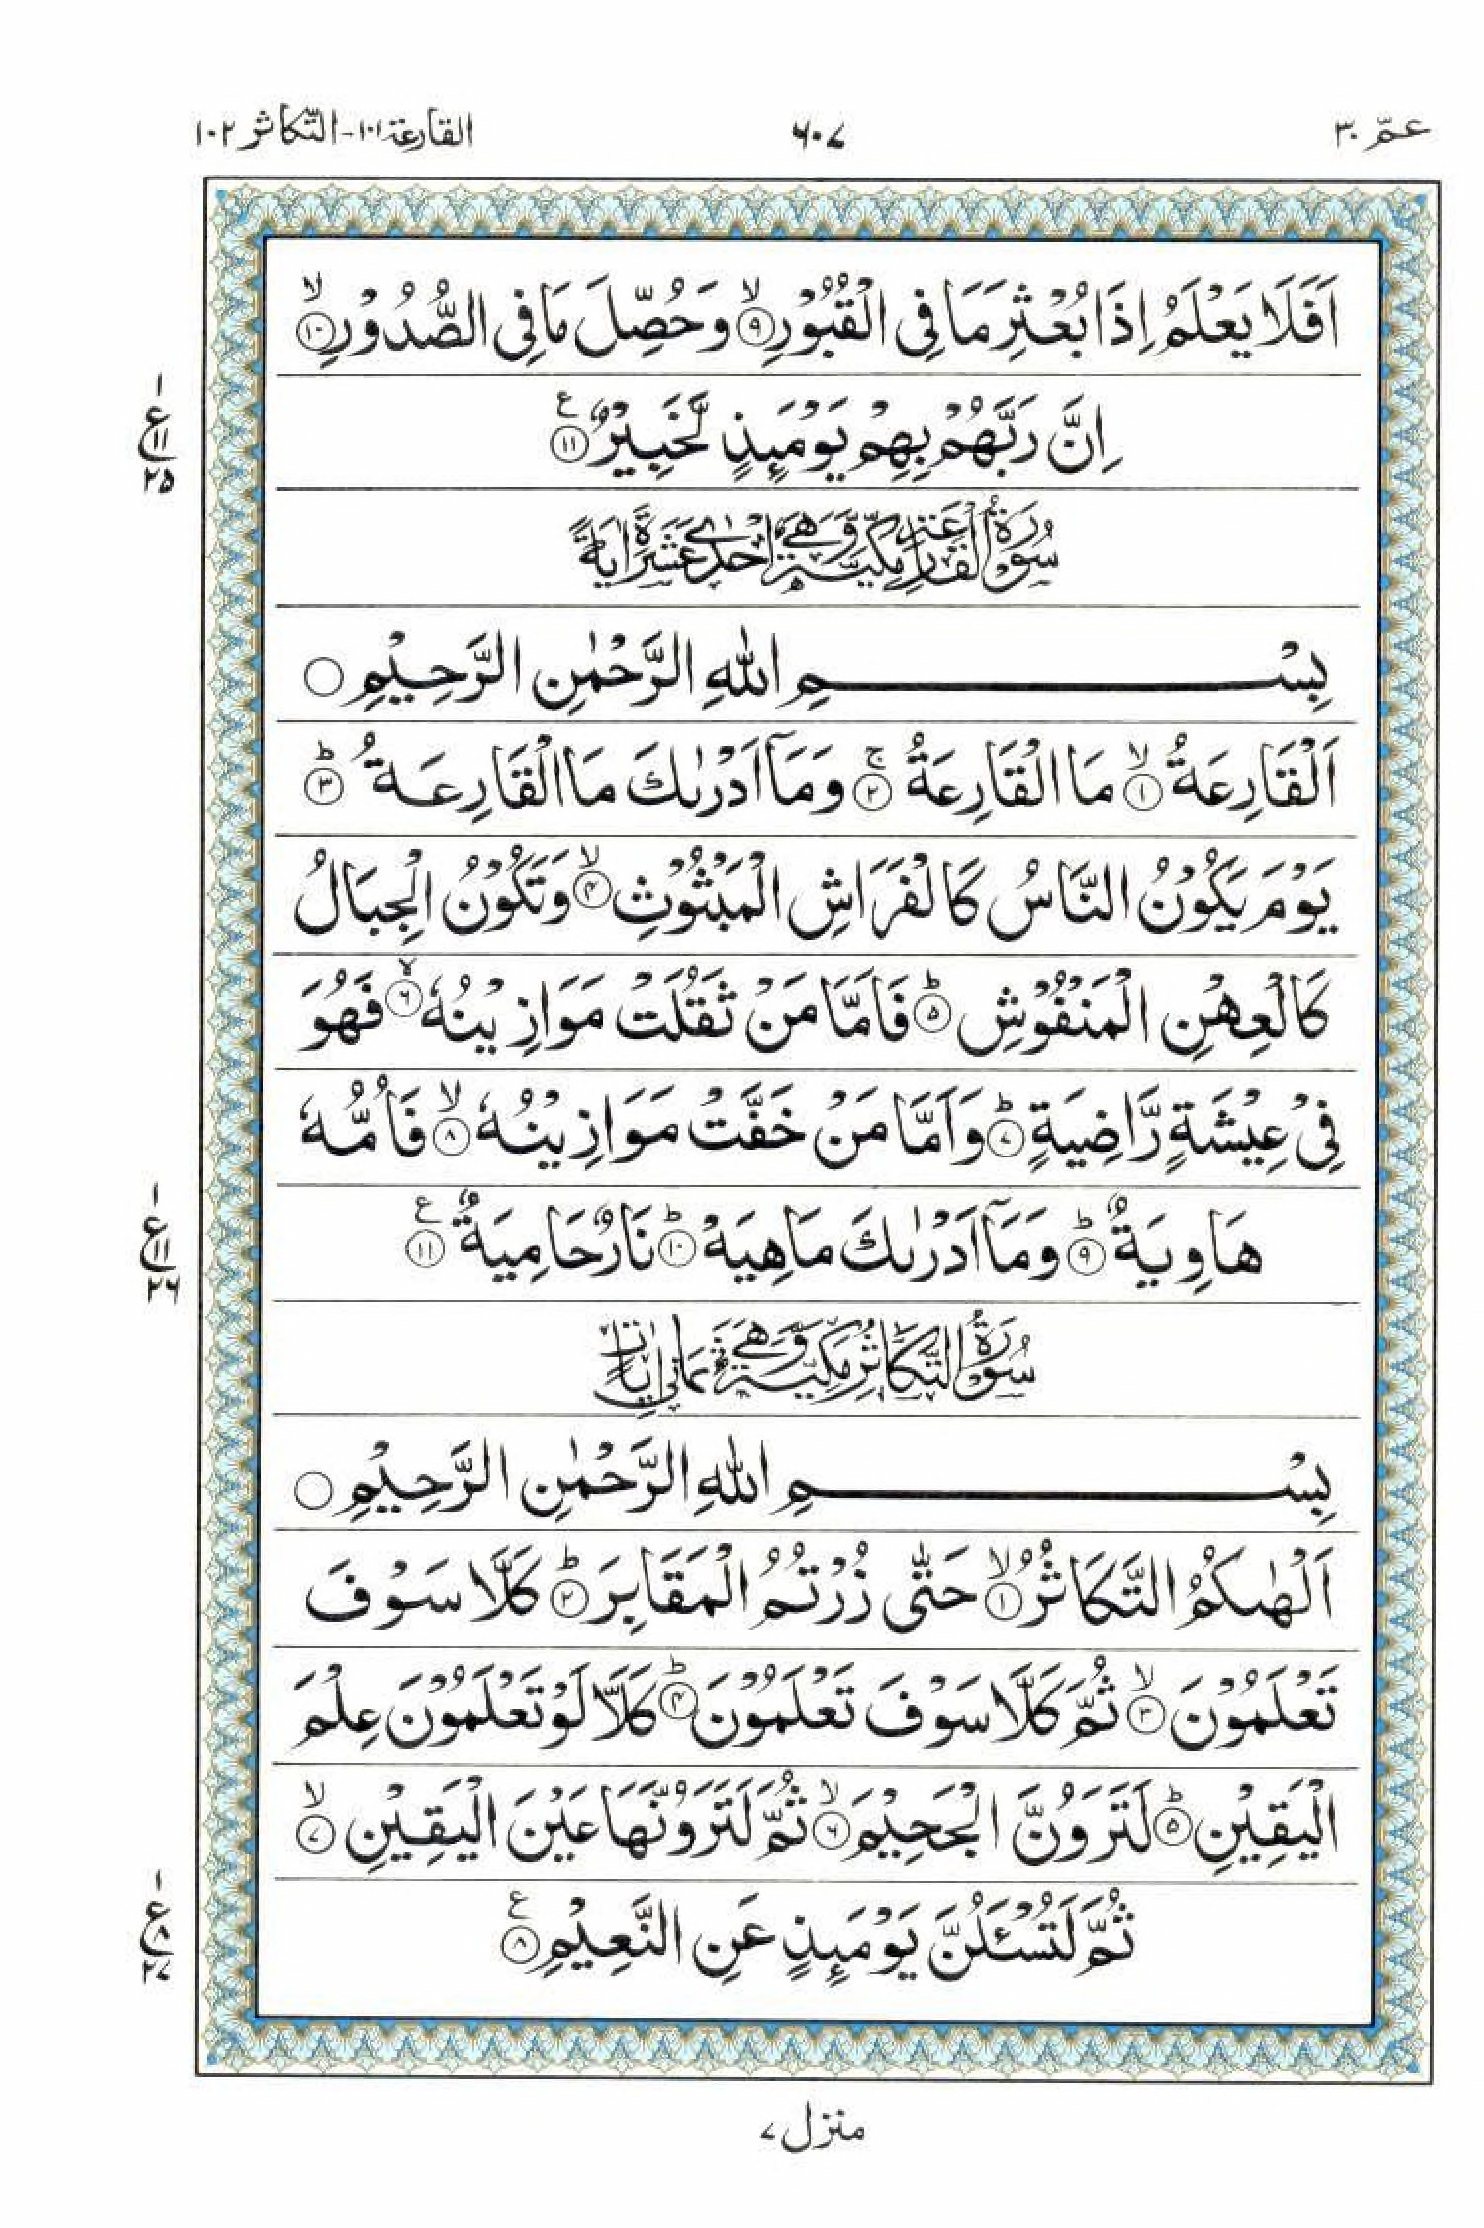 عمّ ٣٠
٦٠٧
القارعة ١٠١ - التّكاثر ١٠٢
اَفَلَا يَعْلَمُ اِذَا بُعْثِرَ مَا فِي الْقُبُوْرِ ۙ‏﴿٩﴾ وَحُصِّلَ مَا فِي الصُّدُوْرِ ۙ‏﴿١٠﴾
اِنَّ رَبَّهُمْ بِهِمْ يَوْمَئِذٍ لَّخَبِيْرٌ ﴿١١﴾ ع
ا
ع
١١
٢٥
سُوْرَةُ الْقَارِعَةِ مَكِّيَّةٌ وَّهِيَ اِحْدٰى عَشَرَةَ اٰيَةً
بِسْمِ اللّٰهِ الرَّحْمٰنِ الرَّحِيْمِ ○
اَلْقَارِعَةُ ۙ‏﴿١﴾ مَا الْقَارِعَةُ ۚ‏﴿٢﴾ وَمَاۤ اَدْرٰىكَ مَا الْقَارِعَةُ ؕ‏﴿٣﴾
يَوْمَ يَكُوْنُ النَّاسُ كَالْفَرَاشِ الْمَبْثُوْثِ ۙ‏﴿٤﴾ وَتَكُوْنُ الْجِبَالُ
كَالْعِهْنِ الْمَنْفُوْشِ ؕ‏﴿٥﴾ فَاَمَّا مَنْ ثَقُلَتْ مَوَازِيْنُهٗ ۙ‏﴿٦﴾ فَهُوَ
فِيْ عِيْشَةٍ رَّاضِيَةٍ ؕ‏﴿٧﴾ وَاَمَّا مَنْ خَفَّتْ مَوَازِيْنُهٗ ۙ‏﴿٨﴾ فَاُمُّهٗ
هَاوِيَةٌ ؕ‏﴿٩﴾ وَمَاۤ اَدْرٰىكَ مَا هِيَهْ ؕ‏﴿١٠﴾ نَارٌ حَامِيَةٌ ﴿١١﴾ ع
ا
ع
١١
٢٦
سُوْرَةُ التَّكَاثُرِ مَكِّيَّةٌ وَّهِيَ ثَمَانِيْ اٰيَاتٍ
بِسْمِ اللّٰهِ الرَّحْمٰنِ الرَّحِيْمِ ○
اَلْهٰىكُمُ التَّكَاثُرُ ۙ‏﴿١﴾ حَتّٰى زُرْتُمُ الْمَقَابِرَ ؕ‏﴿٢﴾ كَلَّا سَوْفَ
تَعْلَمُوْنَ ۙ‏﴿٣﴾ ثُمَّ كَلَّا سَوْفَ تَعْلَمُوْنَ ؕ‏﴿٤﴾ كَلَّا لَوْ تَعْلَمُوْنَ عِلْمَ
الْيَقِيْنِ ؕ‏﴿٥﴾ لَتَرَوُنَّ الْجَحِيْمَ ۙ‏﴿٦﴾ ثُمَّ لَتَرَوُنَّهَا عَيْنَ الْيَقِيْنِ ۙ‏﴿٧﴾
ثُمَّ لَتُسْـَٔلُنَّ يَوْمَئِذٍ عَنِ النَّعِيْمِ ﴿٨﴾ ع
ا
ع
٨
٢٧
منزل ٧